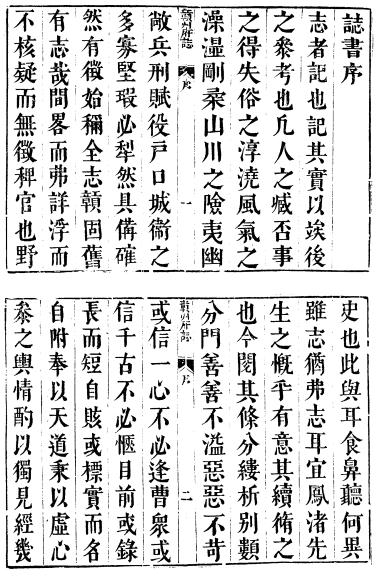 誌書序
志者記也記其實以竢後
之叅考也凡人之臧否事
之得失俗之淳澆風氣之
澡濕剛柔山川之險夷幽
贛州府誌
序
一
敞兵刑賦役戶口城衛之
多寡堅瑕必犁然具備確
然有徵始稱全志贛固舊
有志哉間畧而弗詳浮而
不核疑而無徵稗官也野
史也此與耳食鼻聽何異
雖志猶弗志耳宜鳳渚先
生之慨乎有意其續脩之
也今閱其條分縷析别類
分門善善不溢惡惡不苛
贛州府誌
序
二
或信一心不必逢曹衆或
信千古不必愜目前或錄
長而短自賅或標實而名
自附奉以天道乘以虛心
叅之輿情酌以獨見經幾